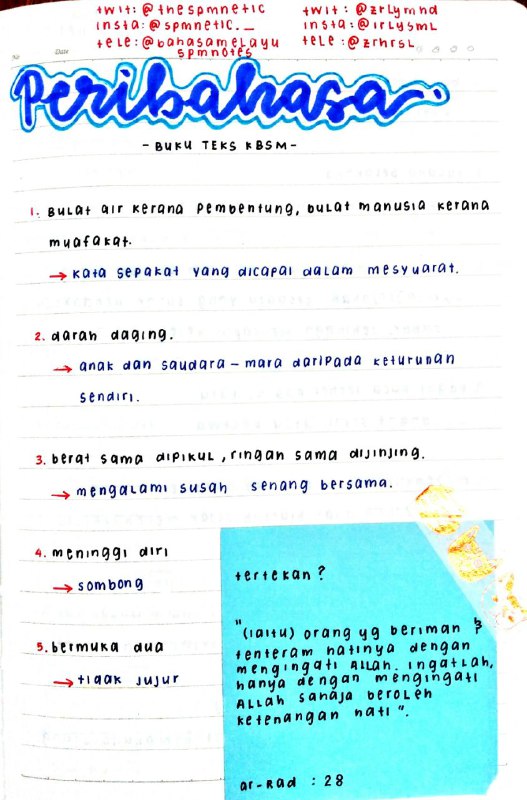 twit: @thespmnetic
insta: @spmnetic._
tele: @bahasamelayu
spmnotes
twit: @zrlymhd
insta: @irlysml
tele: @zrhrsl
No
Date
Peribahasa
- BUKU TEKS KBSM -
1. Bulat air kerana pembentung, bulat manusia kerana
muafakat.
→ kata sepakat yang dicapai dalam mesyuarat.
2. darah daging.
→ anak dan saudara-mara daripada keturunan
sendiri.
3. berat sama dipikul, ringan sama dijinjing.
→ mengalami susah senang bersama.
4. meninggi diri
→ sombong
5. bermuka dua
→ tidak jujur
tertekan?
"(iaitu) orang yg beriman &
tenteram hatinya dengan
mengingati Allah. Ingatlah,
hanya dengan mengingati
Allah sahaja beroleh
ketenangan hati".
ar-Rad : 28